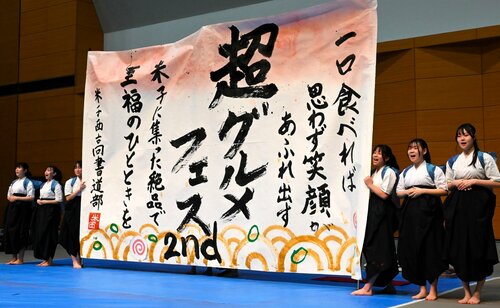 一口食べれば
思わず笑顔が
あふれ出す
超グルメ
フェス
2nd
米子に集った絶品で
至福のひとときを
米子西高書道部